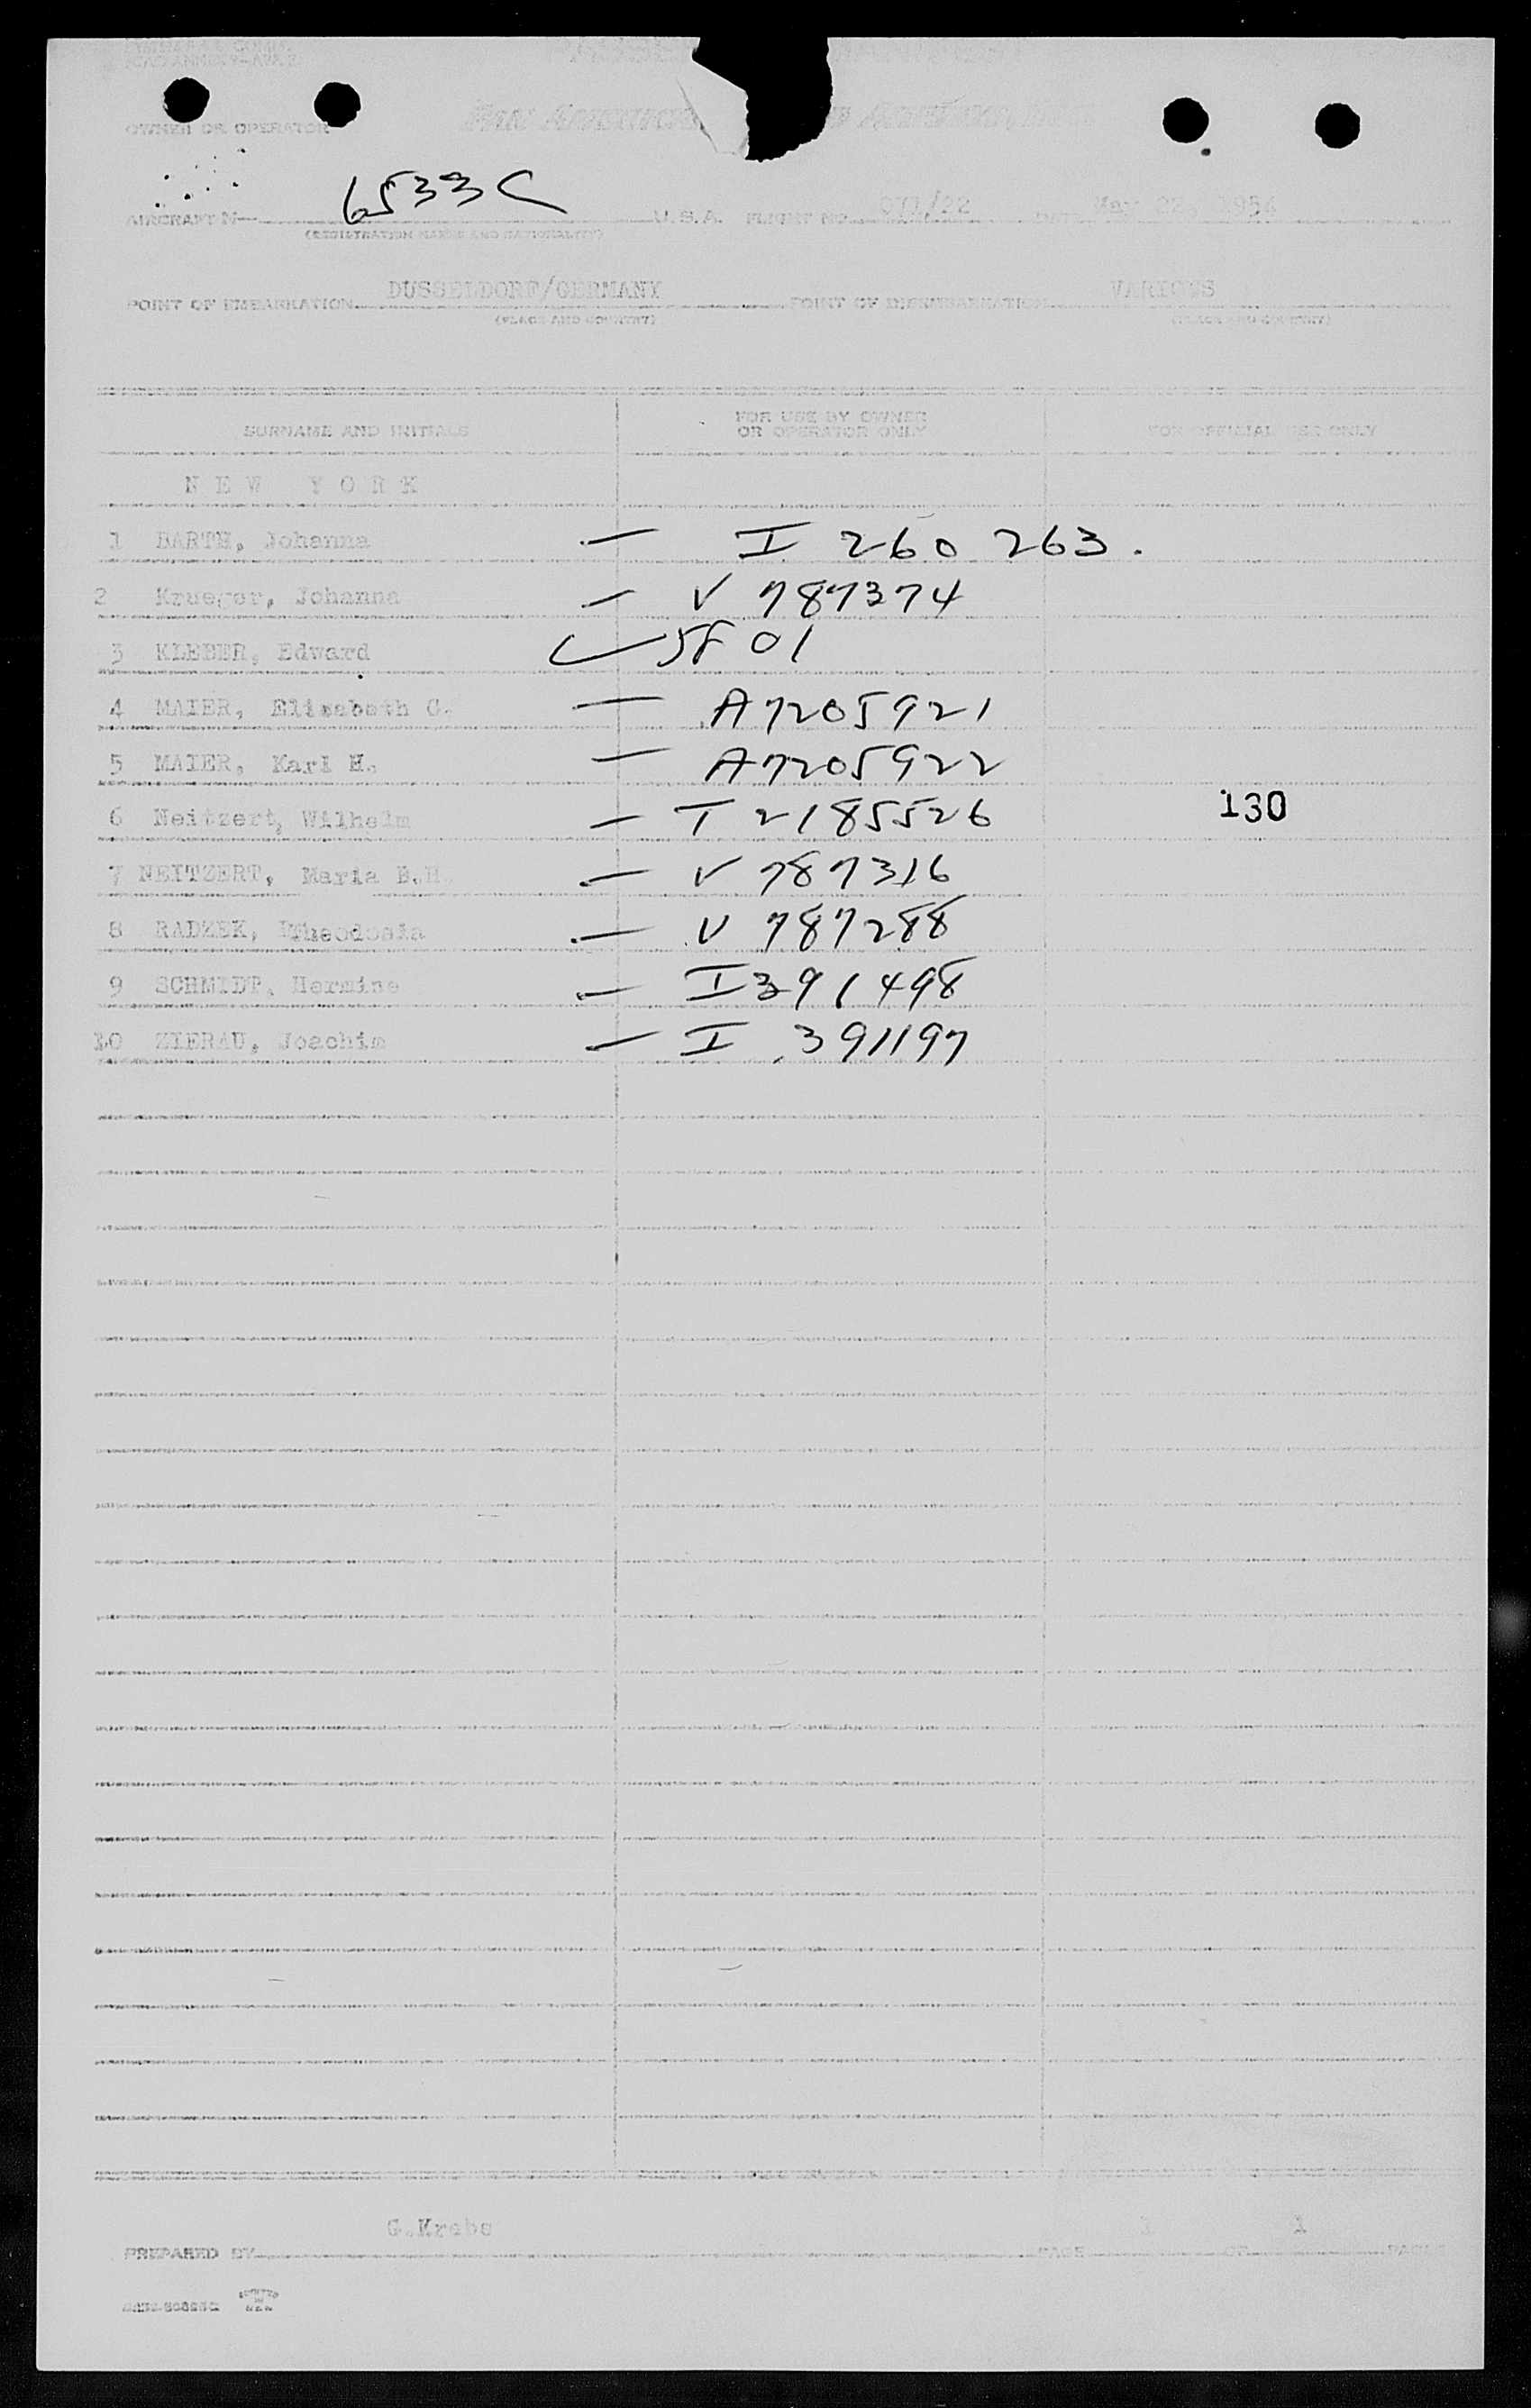 OWNER OR OPERATOR
6533C
AIRCRAFT N— U.S.A. FLIGHT NO. /22 May 22, 1954
(REGISTRATION MARKS AND NATIONALITY)
POINT OF EMBARKATION DUSSELDORF/GERMANY POINT OF DISEMBARKATION VARIOUS
(PLACE AND COUNTRY) (PLACE AND COUNTRY)
SURNAME AND INITIALS FOR USE BY OWNER OR OPERATOR ONLY FOR OFFICIAL USE ONLY
N E W Y O R K
1 BARTH, Johanna — I 260 263.
2 Krueger, Johanna — V 787374
3 KLEBER, Edward 5801
4 MAIER, Elisabeth C. — A7205921
5 MAIER, Karl H. — A7205922
6 Neitzert, Wilhelm — T 2185526 130
7 NEITZERT, Maria B.H. — V 787316
8 RADZEK, Theodosia — V 787288
9 SCHMIDT, Hermine — I 391498
10 ZIERAU, Joachim — I 391197
G.Krebs 1 1
PREPARED BY PAGE OF PAGES